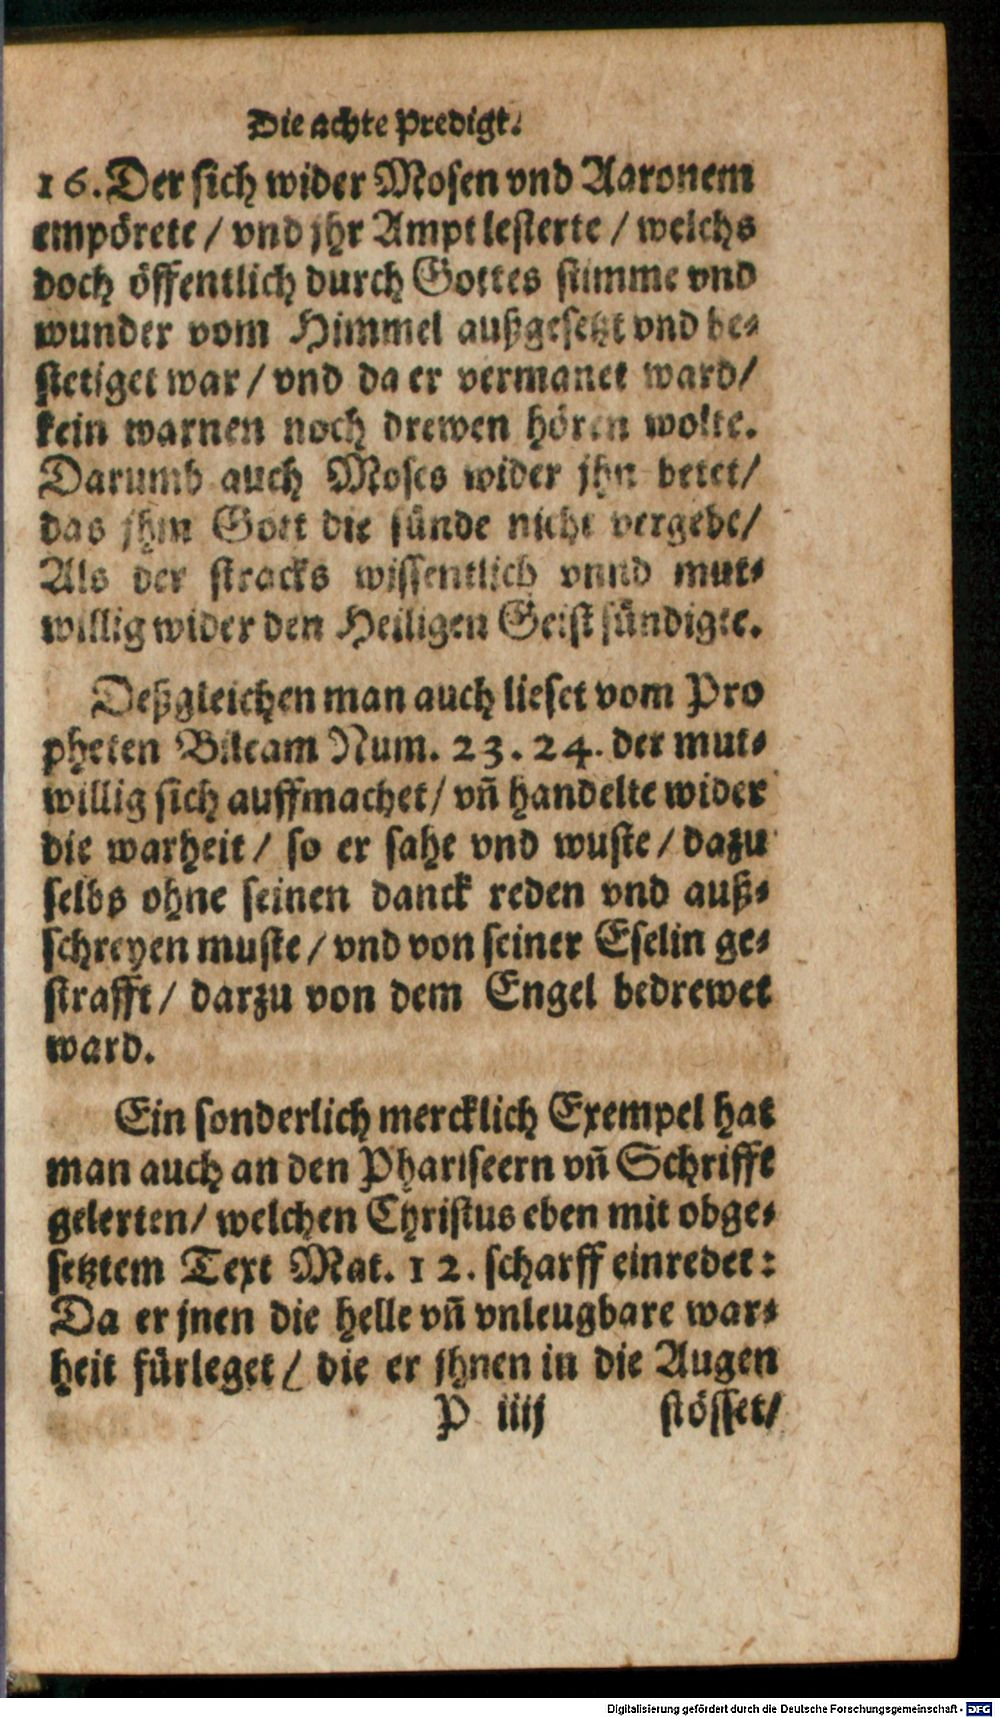 Die achte Predigt.
16. Der sich wider Mosen vnd Aaronem
empörete / vnd jhr Ampt lesterte / welchs
doch öffentlich durch Gottes stimme vnd
wunder vom Himmel außgesetzt vnd be-
stetiget war / vnd da er vermanet ward /
kein warnen noch drewen hören wolte.
Darumb auch Moses wider jhn betet /
das jhm Gott die sünde nicht vergebe /
Als der stracks wissentlich vnnd mut-
willig wider den Heiligen Geist sündigte.
Deßgleichen man auch lieset vom Pro
pheten Bileam Num. 23. 24. der mut-
willig sich auffmachet / vñ handelte wider
die warheit / so er sahe vnd wuste / dazu
selbs ohne seinen danck reden vnd auß-
schreyen muste / vnd von seiner Eselin ge-
strafft / darzu von dem Engel bedrewet
ward.
Ein sonderlich mercklich Exempel hat
man auch an den Phariseern vñ Schrifft
gelerten / welchen Christus eben mit obge-
setztem Text Mat. 12. scharff einredet:
Da er jnen die helle vñ vnleugbare war-
heit fürleget / die er jhnen in die Augen
P iiij stösset /
Digitalisierung gefördert durch die Deutsche Forschungsgemeinschaft - DFG